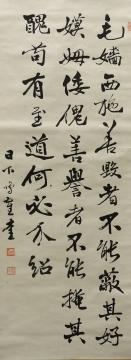 毛嬙西施善毀者不能蔽其好
嫫姆倭傀善譽者不能掩其
醜苟有至道何必介紹
日下鳴鶴書